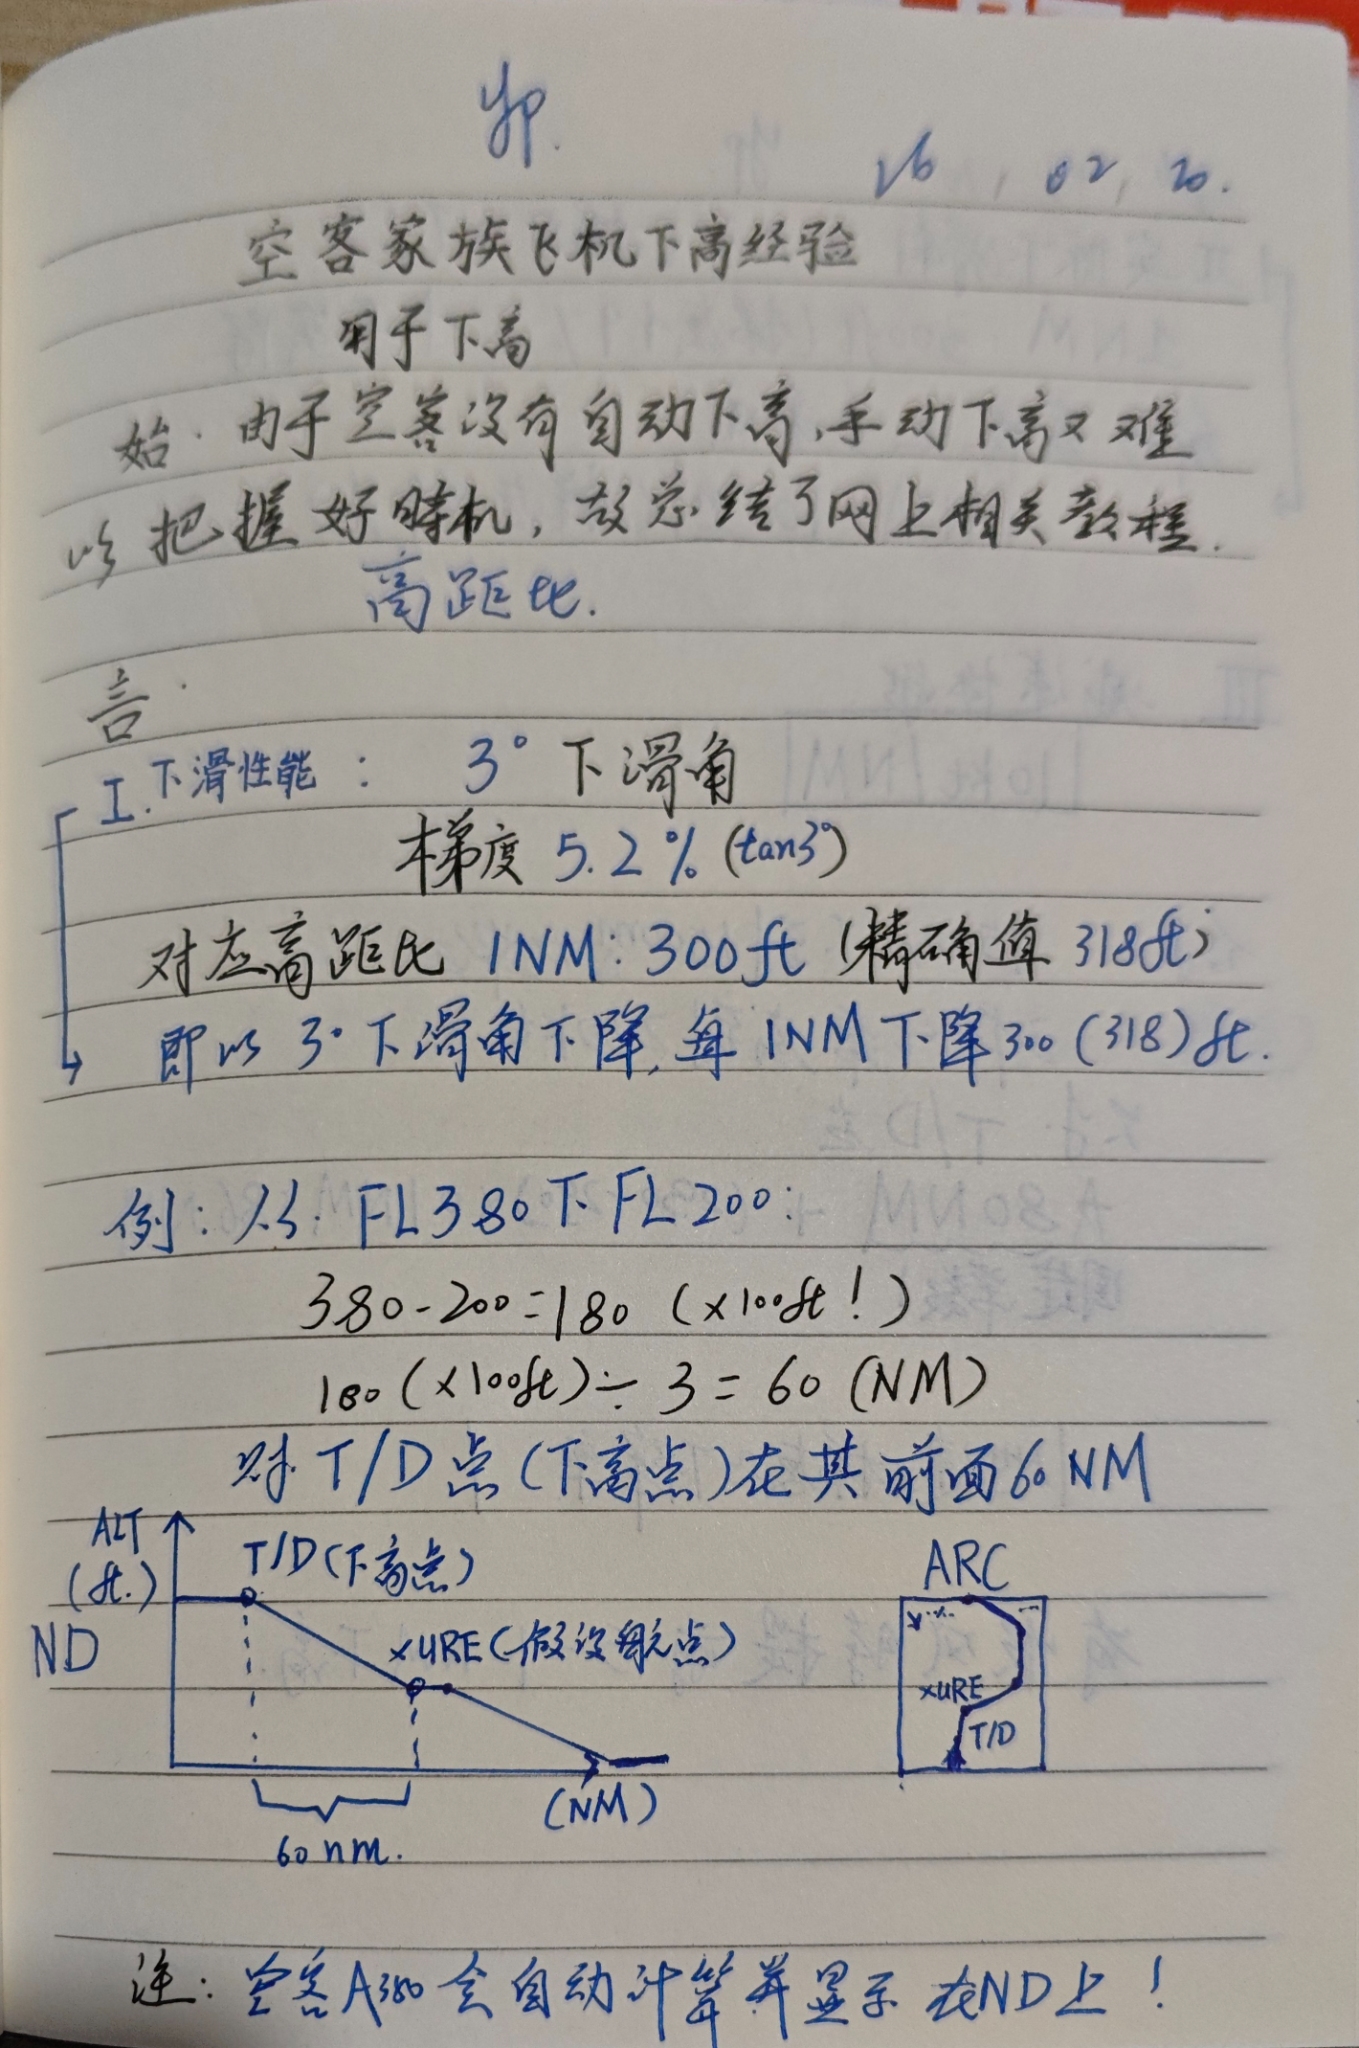 yp.
26, 02, 20.
空客家族飞机下高经验
用于下高
始. 由于空客没有自动下高,手动下高又难
以把握好時机,故总结了网上相关教程.
高距比.
言.
I. 下滑性能: 3°下滑角
梯度 5.2% (tan3°)
对应高距比 1NM:300ft (精确值 318ft)
即以 3°下滑角下降,每 1NM下降300(318)ft.
例: 从: FL380下FL200:
380-200=180 (×100ft!)
180(×100ft)÷3=60 (NM)
T/D点(下高点)在其前面60NM
ALT
(ft.)
T/D(下高点)
ARC
ND
xURE(假设航点)
xURE
T/D
(NM)
60nm.
注: 空客A380会自动计算并显示在ND上!